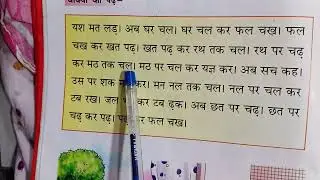 वाक्यों को पढ़ें–
यश मत लड़। अब घर चल। घर चल कर फल चख। फल
चख कर खत पढ़। खत पढ़ कर रथ तक चल। रथ पर चढ़
कर मठ तक चल। मठ पर चल कर यज्ञ कर। अब सच कह।
उस पर शक मत कर। मन नल तक चल। नल पर चल कर
टब रख। जल भर कर टब ढक। अब छत पर चढ़। छत पर
चढ़ कर पढ़। पढ़ कर फल चख।